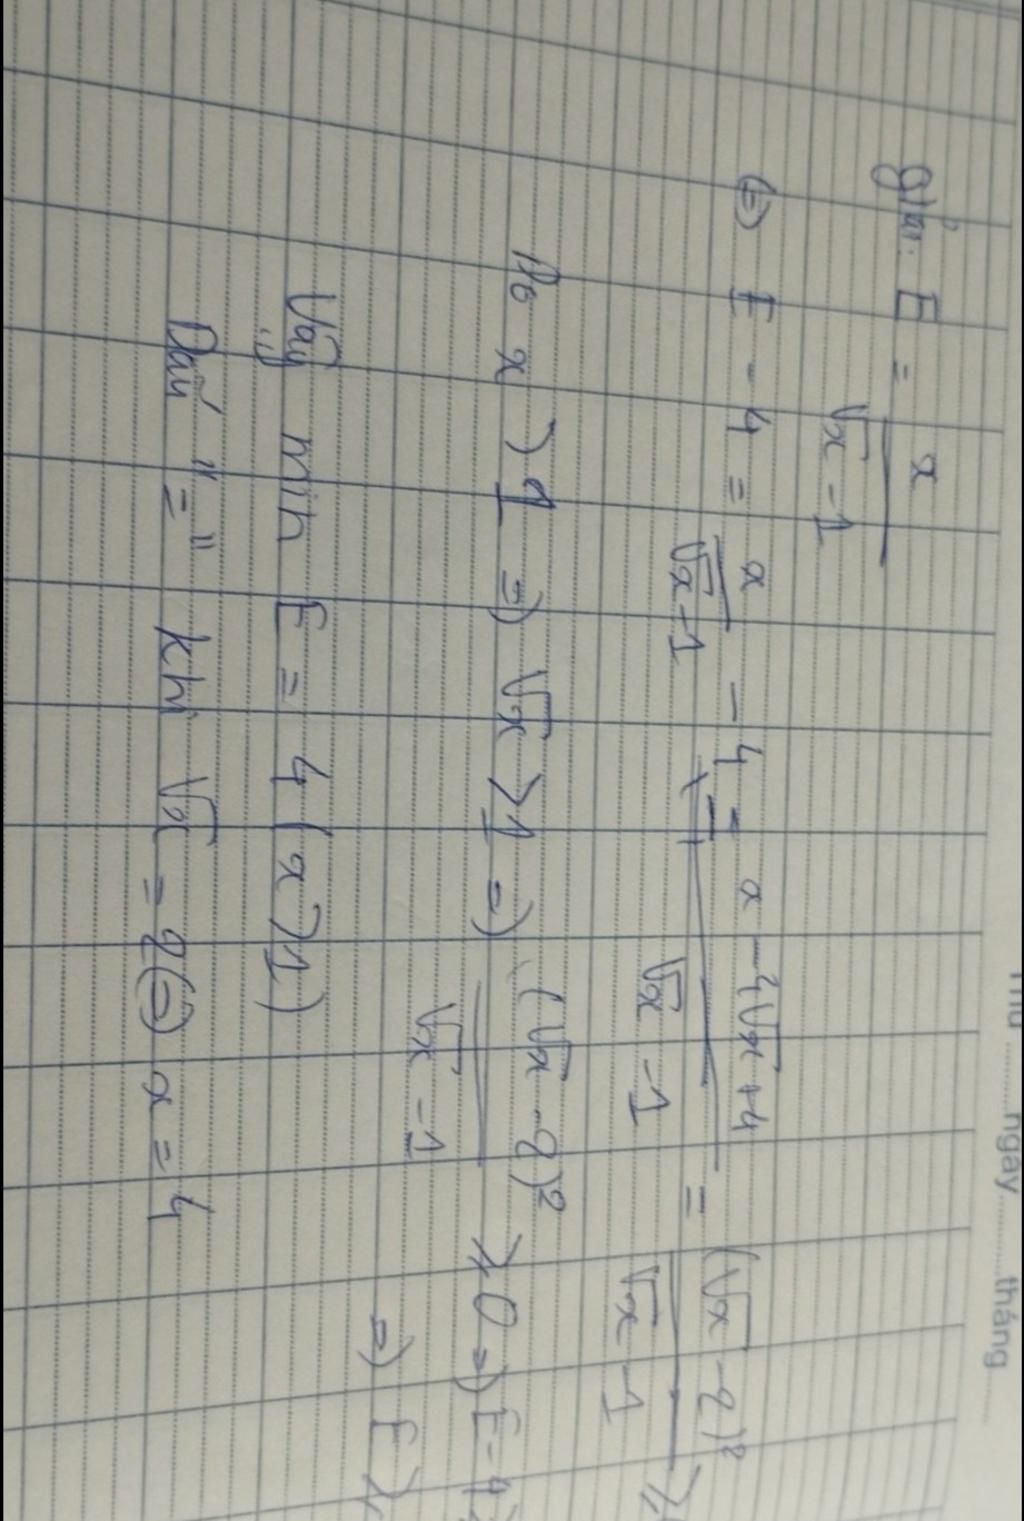 Thứ ngày tháng
giải: E = x / (√x - 1)
⇔ E - 4 = x / (√x - 1) - 4 = (x - 4√x + 4) / (√x - 1) = (√x - 2)² / (√x - 1) ≥
Do x > 1 ⇒ √x > 1 ⇒ (√x - 2)² / (√x - 1) ≥ 0 ⇒ E - 4
⇒ E ≥
Vậy min E = 4 (x > 1)
Dấu "=" khi √x = 2 ⇔ x = 4